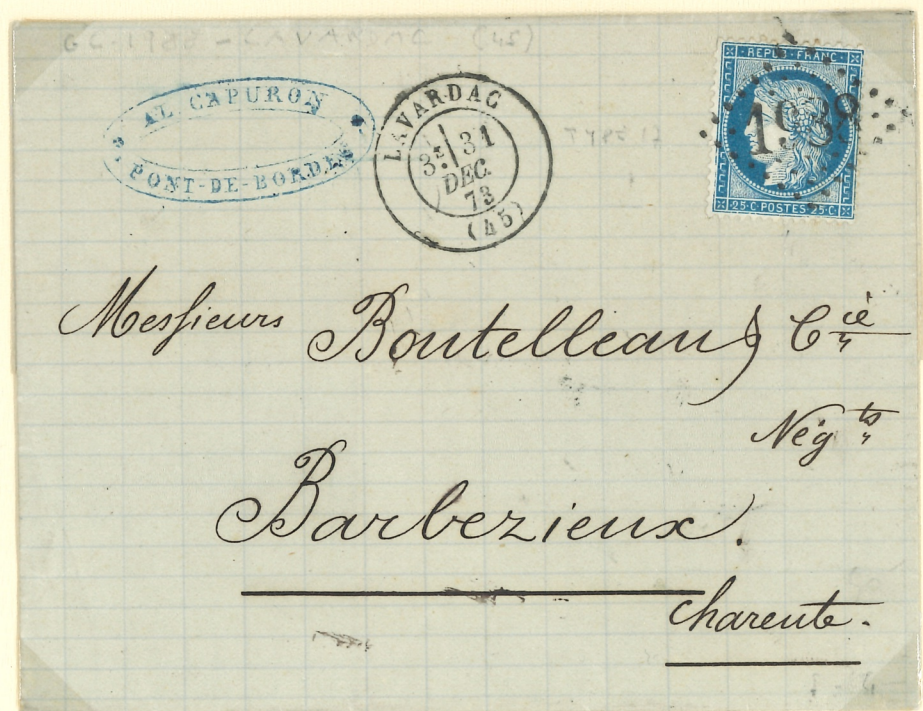 GC 1988 - LAVARDAC - (45)
AL CAPURON
PONT-DE-BORDES
LAVARDAC
3E 31
DEC.
73
(45)
REPUB·FRANC·
1988
25·C·POSTES·25·C
Messieurs Boutelleau & Cie
Négts
Barbezieux.
Charente.